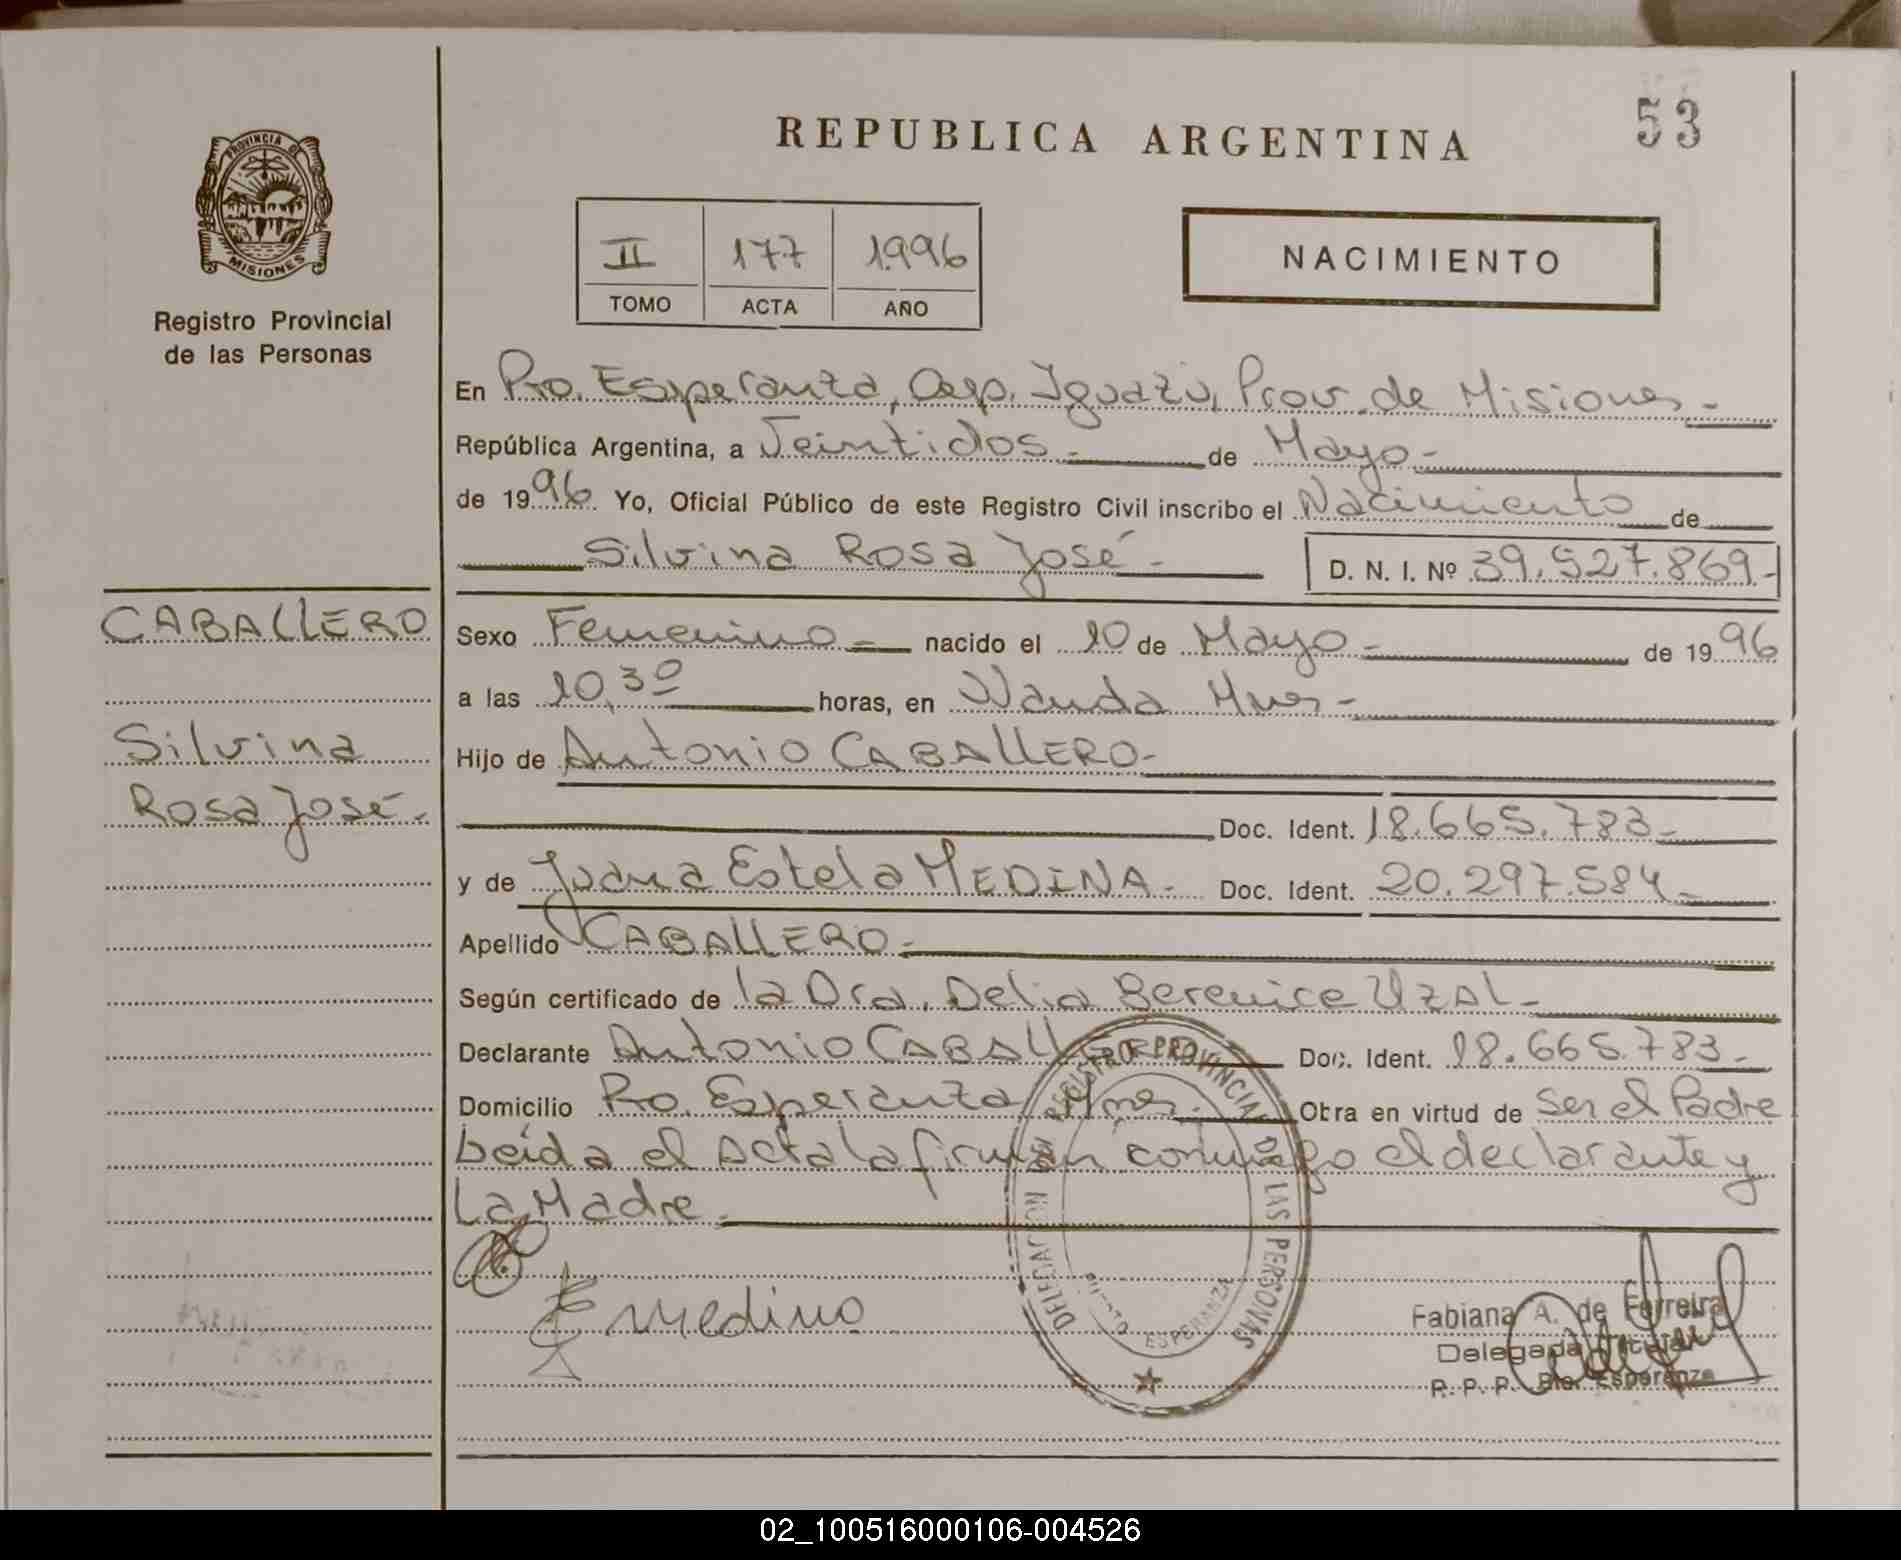 53
REPUBLICA ARGENTINA
PROVINCIA DE
MISIONES
Registro Provincial
de las Personas
II 177 1996
TOMO ACTA AÑO
NACIMIENTO
En Pto. Esperanza, Dep. Iguazú, Prov. de Misiones.-
República Argentina, a Veintidos.- de Mayo.-
de 1996 Yo, Oficial Público de este Registro Civil inscribo el Nacimiento de
Silvina Rosa José.- D. N. I. Nº 39.527.869.-
CABALLERO
Silvina
Rosa José.-
Sexo Femenino.- nacido el 10 de Mayo.- de 1996
a las 10,30 horas, en Wanda Mnes.-
Hijo de Antonio CABALLERO.-
Doc. Ident. 18.665.783.-
y de Juana Estela MEDINA.- Doc. Ident. 20.297.584.-
Apellido CABALLERO.-
Según certificado de la Dra. Delia Berenice UZAL.-
Declarante Antonio CABALLERO Doc. Ident. 18.665.783.-
Domicilio Pto. Esperanza, Mnes.- Obra en virtud de ser el Padre
Leída el Acta la firman conmigo el declarante y
La Madre.-
E Medina
REGISTRO PROVINCIAL DE LAS PERSONAS
ESPERANZA
Fabiana A. de Ferreira
Delegada Titular
R. P. P. Pto. Esperanza
02_100516000106-004526